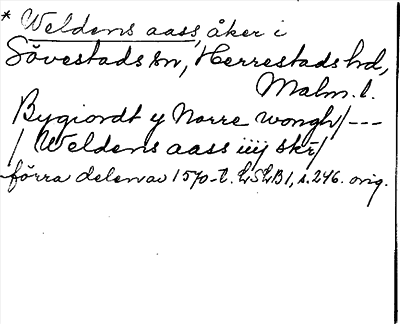 * Weldens aass, åker i
Sövestads sn, Herrestads hd,
Malm. l.
Bygiordt y Norre wongh/---
/ Weldens aass iiij skr/
förra delen av 1570-t. LSLB1, s. 246. orig.